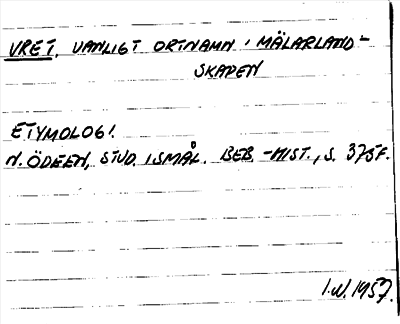 VRET, VANLIGT ORTNAMN I MÄLARLAND-
SKAPEN
ETYMOLOGI.
N. ÖDEEN, STUD. I SMÅL. BEB.-HIST., S. 375F.
I.W. 1957.